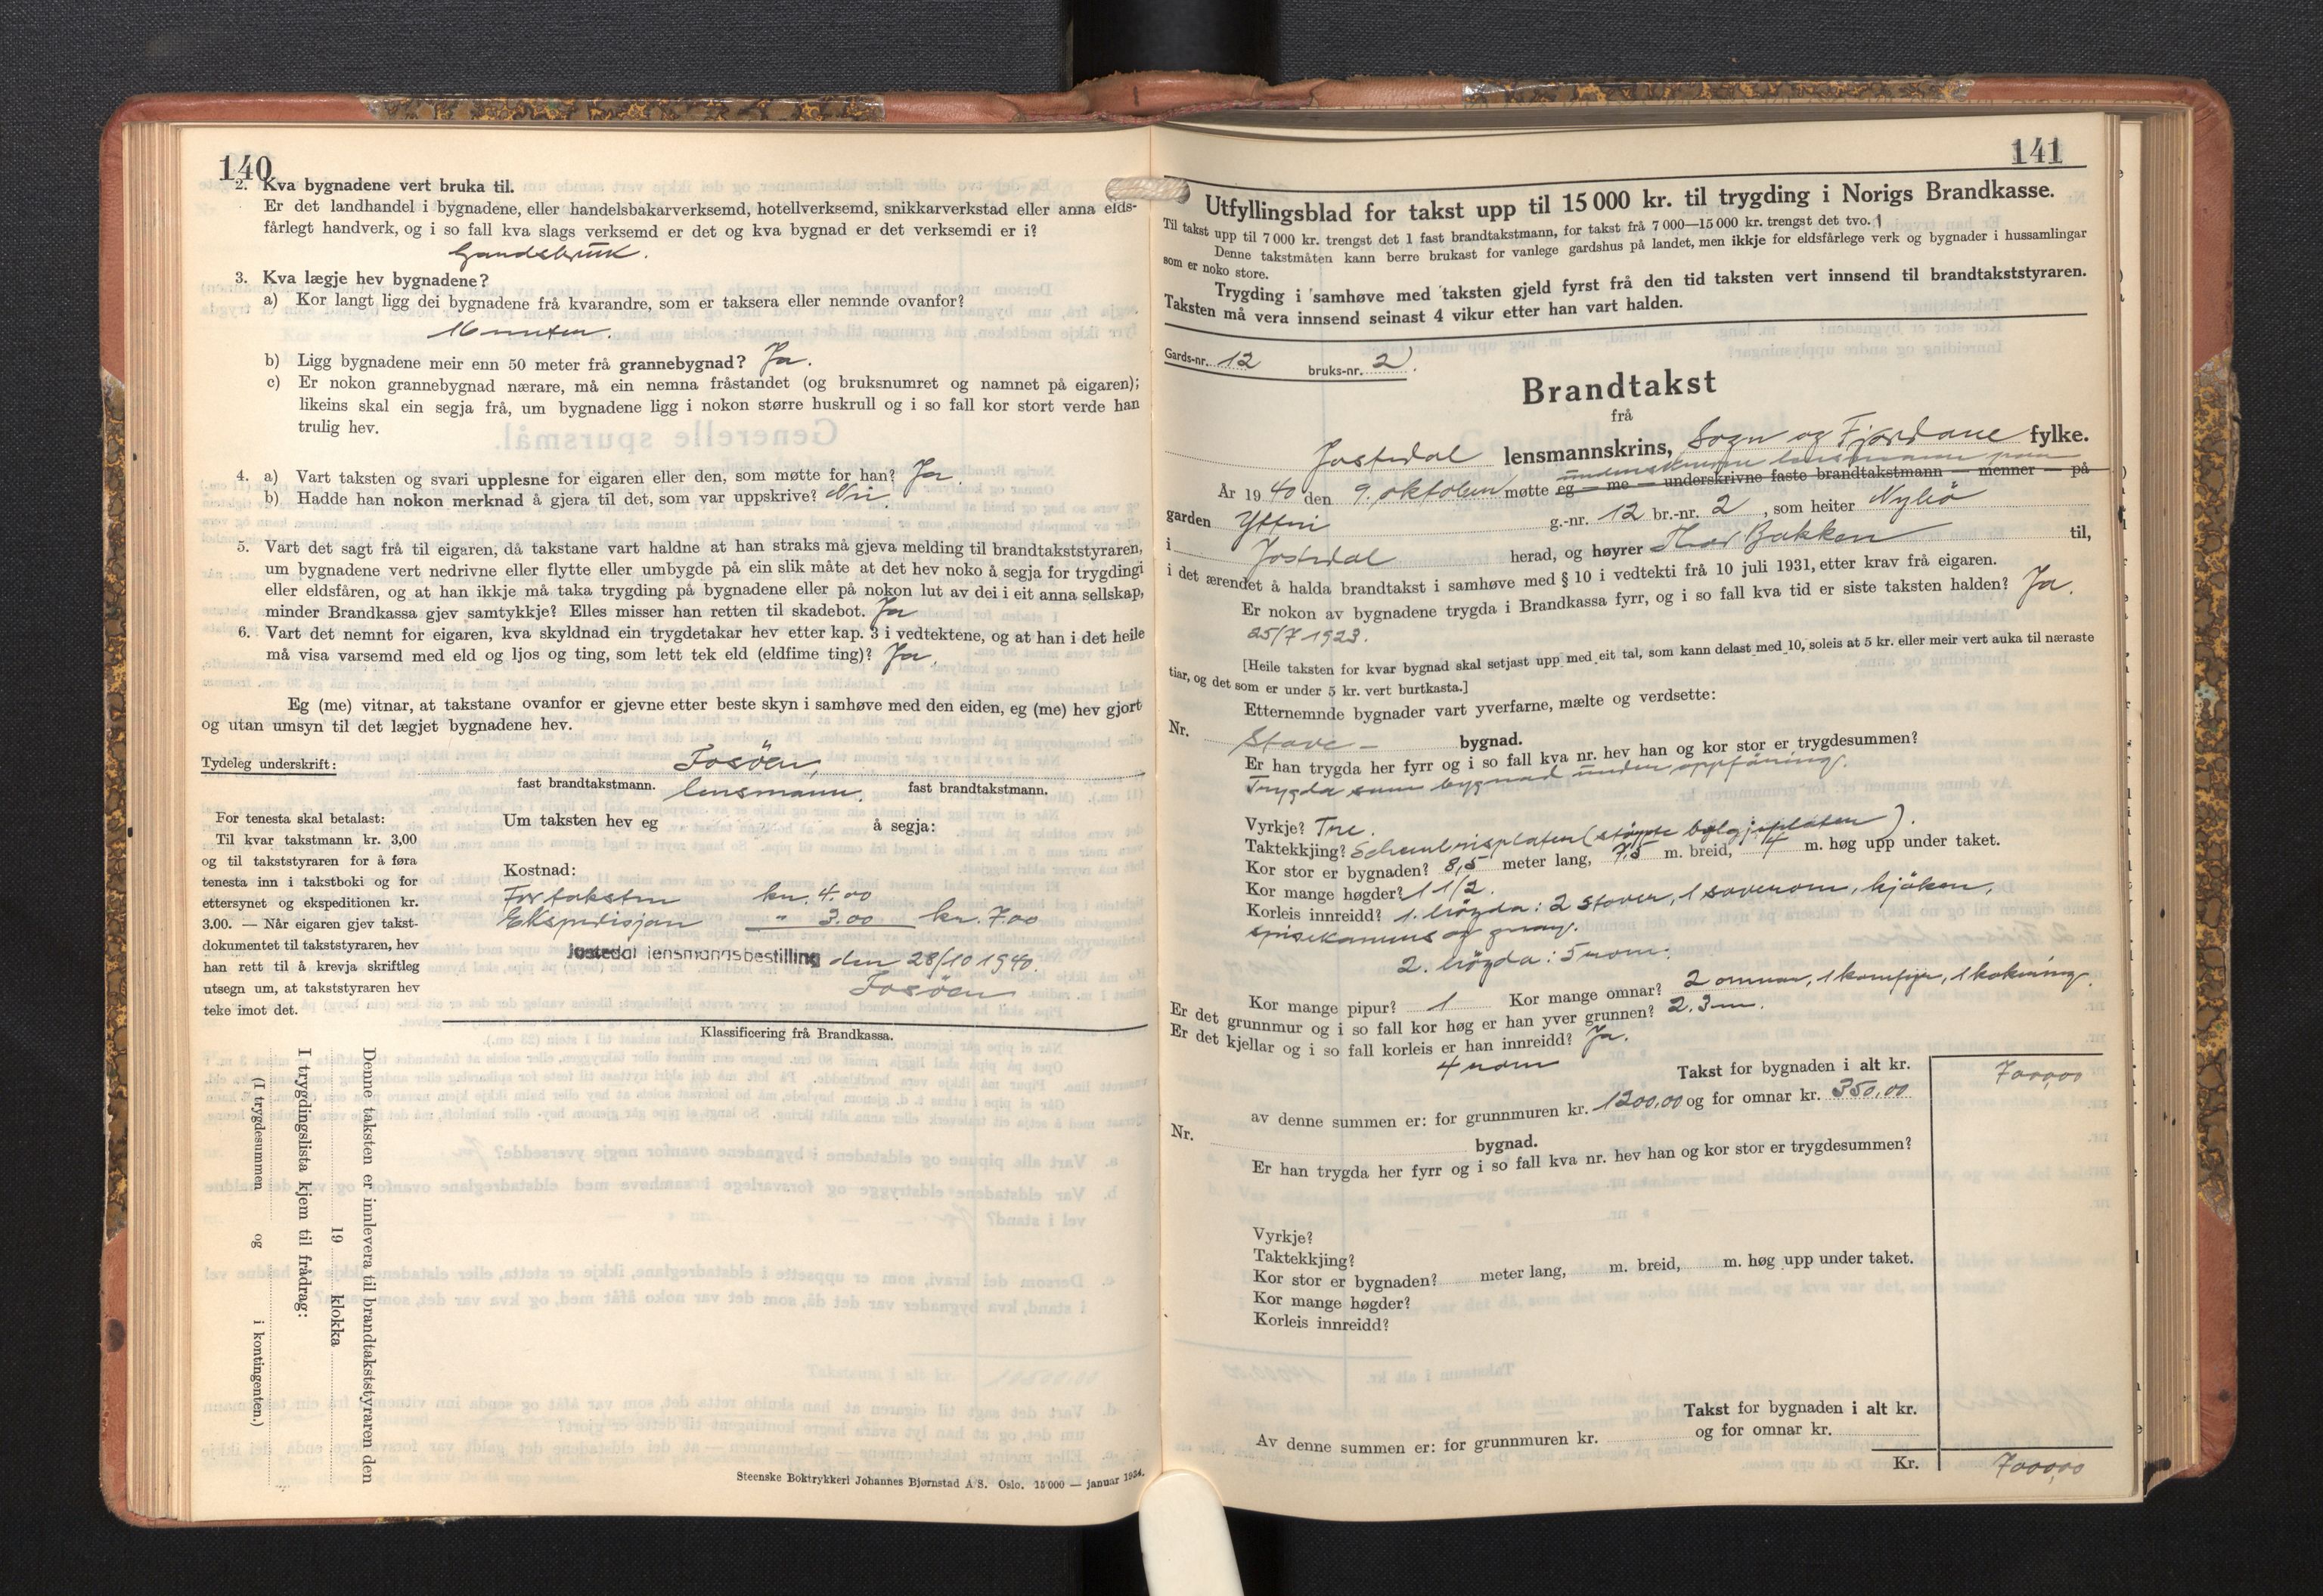 140
2. Kva bygnadene vert bruka til.
Er det landhandel i bygnadene, eller handelsbakarverksemd, hotellverksemd, snikkarverkstad eller anna elds-
fårlegt handverk, og i so fall kva slags verksemd er det og kva bygnad er det verksemdi er i?
Gardsbruk.
3. Kva lægje hev bygnadene?
a) Kor langt ligg dei bygnadene frå kvarandre, som er taksera eller nemnde ovanfor?
16 meter.
b) Ligg bygnadene meir enn 50 meter frå grannebygnad? Ja.
c) Er nokon grannebygnad nærare, må ein nemna fråstandet (og bruksnumret og namnet på eigaren);
likeins skal ein segja frå, um bygnadene ligg i nokon større huskrull og i so fall kor stort verde han
trulig hev.
4. a) Vart taksten og svari upplesne for eigaren eller den, som møtte for han? Ja.
b) Hadde han nokon merknad å gjera til det, som var uppskrive? Nei
5. Vart det sagt frå til eigaren, då takstane vart haldne at han straks må gjeva melding til brandtakststyraren,
um bygnadene vert nedrivne eller flytte eller umbygde på ein slik måte at det hev noko å segja for trygdingi
eller eldsfåren, og at han ikkje må taka trygding på bygnadene eller på nokon lut av dei i eit anna sellskap,
minder Brandkassa gjev samtykkje? Elles misser han retten til skadebot. Ja
6. Vart det nemnt for eigaren, kva skyldnad ein trygdetakar hev etter kap. 3 i vedtektene, og at han i det heile
må visa varsemd med eld og ljos og ting, som lett tek eld (eldfime ting)? Ja.
Eg (me) vitnar, at takstane ovanfor er gjevne etter beste skyn i samhøve med den eiden, eg (me) hev gjort
og utan umsyn til det lægjet bygnadene hev.
Tydeleg underskrift: Fosöen,
fast brandtakstmann. lensmann. fast brandtakstmann.
For tenesta skal betalast:
Til kvar takstmann kr. 3,00
og til takststyraren for å føra
tenesta inn i takstboki og for
ettersynet og ekspeditionen kr.
3.00. — Når eigaren gjev takst-
dokumentet til takststyraren, hev
han rett til å krevja skriftleg
utsegn um, at takststyraren hev
teke imot det.
Um taksten hev eg å segja:
Kostnad:
For taksten kr. 4.00
Ekspedisjon " 3.00 kr. 7.00
Jostedal lensmannsbestilling den 28/10 1940.
Fosöen
Klassificering frå Brandkassa.
Denne taksten er innlevera til brandtakststyraren den
19 klokka
I trygdingslista kjem til frådrag:
(I trygdesummen og i kontingenten.)
Steenske Boktrykkeri Johannes Bjørnstad A/S. Oslo. 15 000 — januar 1934.
141
Utfyllingsblad for takst upp til 15 000 kr. til trygding i Norigs Brandkasse.
Til takst upp til 7 000 kr. trengst det 1 fast brandtakstmann, for takst frå 7 000—15 000 kr. trengst det tvo.
Denne takstmåten kann berre brukast for vanlege gardshus på landet, men ikkje for eldsfårlege verk og bygnader i hussamlingar
som er noko store.
Trygding i samhøve med taksten gjeld fyrst frå den tid taksten vert innsend til brandtakststyraren.
Taksten må vera innsend seinast 4 vikur etter han vart halden.
Gards-nr. 12 bruks-nr. 2.
Brandtakst
frå
Jostedal lensmannskrins, Sogn og Fjordane fylke.
underskrivne lensmann paa
År 1940 den 9. oktober møtte eg — me — underskrivne faste brandtakstmann — menner — på
garden Yttri g.-nr. 12 br.-nr. 2, som heiter Nylid
i Jostedal herad, og høyrer Thor Bakken til,
i det ærendet å halda brandtakst i samhøve med § 10 i vedtekti frå 10 juli 1931, etter krav frå eigaren.
Er nokon av bygnadene trygda i Brandkassa fyrr, og i so fall kva tid er siste taksten halden? Ja.
25/7 1923.
[Heile taksten for kvar bygnad skal setjast upp med eit tal, som kann delast med 10, soleis at 5 kr. eller meir vert auka til næraste
tiar, og det som er under 5 kr. vert burtkasta.]
Etternemnde bygnader vart yverfarne, mælte og verdsette:
Nr. Stove - bygnad.
Er han trygda her fyrr og i so fall kva nr. hev han og kor stor er trygdesummen?
Trygda som bygnad under oppföring.
Vyrkje? Tre.
Taktekkjing? (støypte bølgjeplater).
Kor stor er bygnaden? 8,5 meter lang, 7,5 m. breid, 4 m. høg upp under taket.
Kor mange høgder? 1 1/2.
Korleis innreidd? 1. högda: 2 stover, 1 soverom, kjöken,
spisekammers og gang.
2. högda: 5 rom.
Kor mange pipur? 1 Kor mange omnar? 2 omnar, 1 komfyr, 1 kokering.
Er det grunnmur og i so fall kor høg er han yver grunnen? 2.3 m.
Er det kjellar og i so fall korleis er han innreidd? Ja.
4 rom
Takst for bygnaden i alt kr. 7000,00
av denne summen er: for grunnmuren kr. 1200,00 og for omnar kr. 350,00
Nr. bygnad.
Er han trygda her fyrr og i so fall kva nr. hev han og kor stor er trygdesummen?
Vyrkje?
Taktekkjing?
Kor stor er bygnaden? meter lang, m. breid, m. høg upp under taket.
Kor mange høgder?
Korleis innreidd?
Takst for bygnaden i alt kr.
Av denne summen er: for grunnmuren kr. og for omnar kr.
Kr. 7000,00